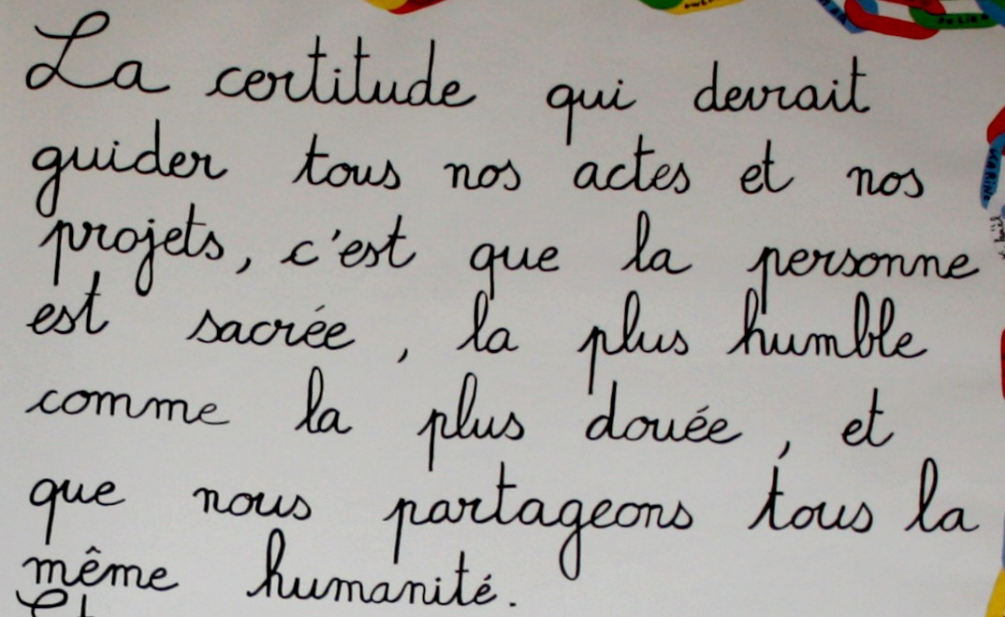 La certitude qui devrait
guider tous nos actes et nos
projets, c'est que la personne
est sacrée, la plus humble
comme la plus douée, et
que nous partageons tous la
même humanité.
MARINE